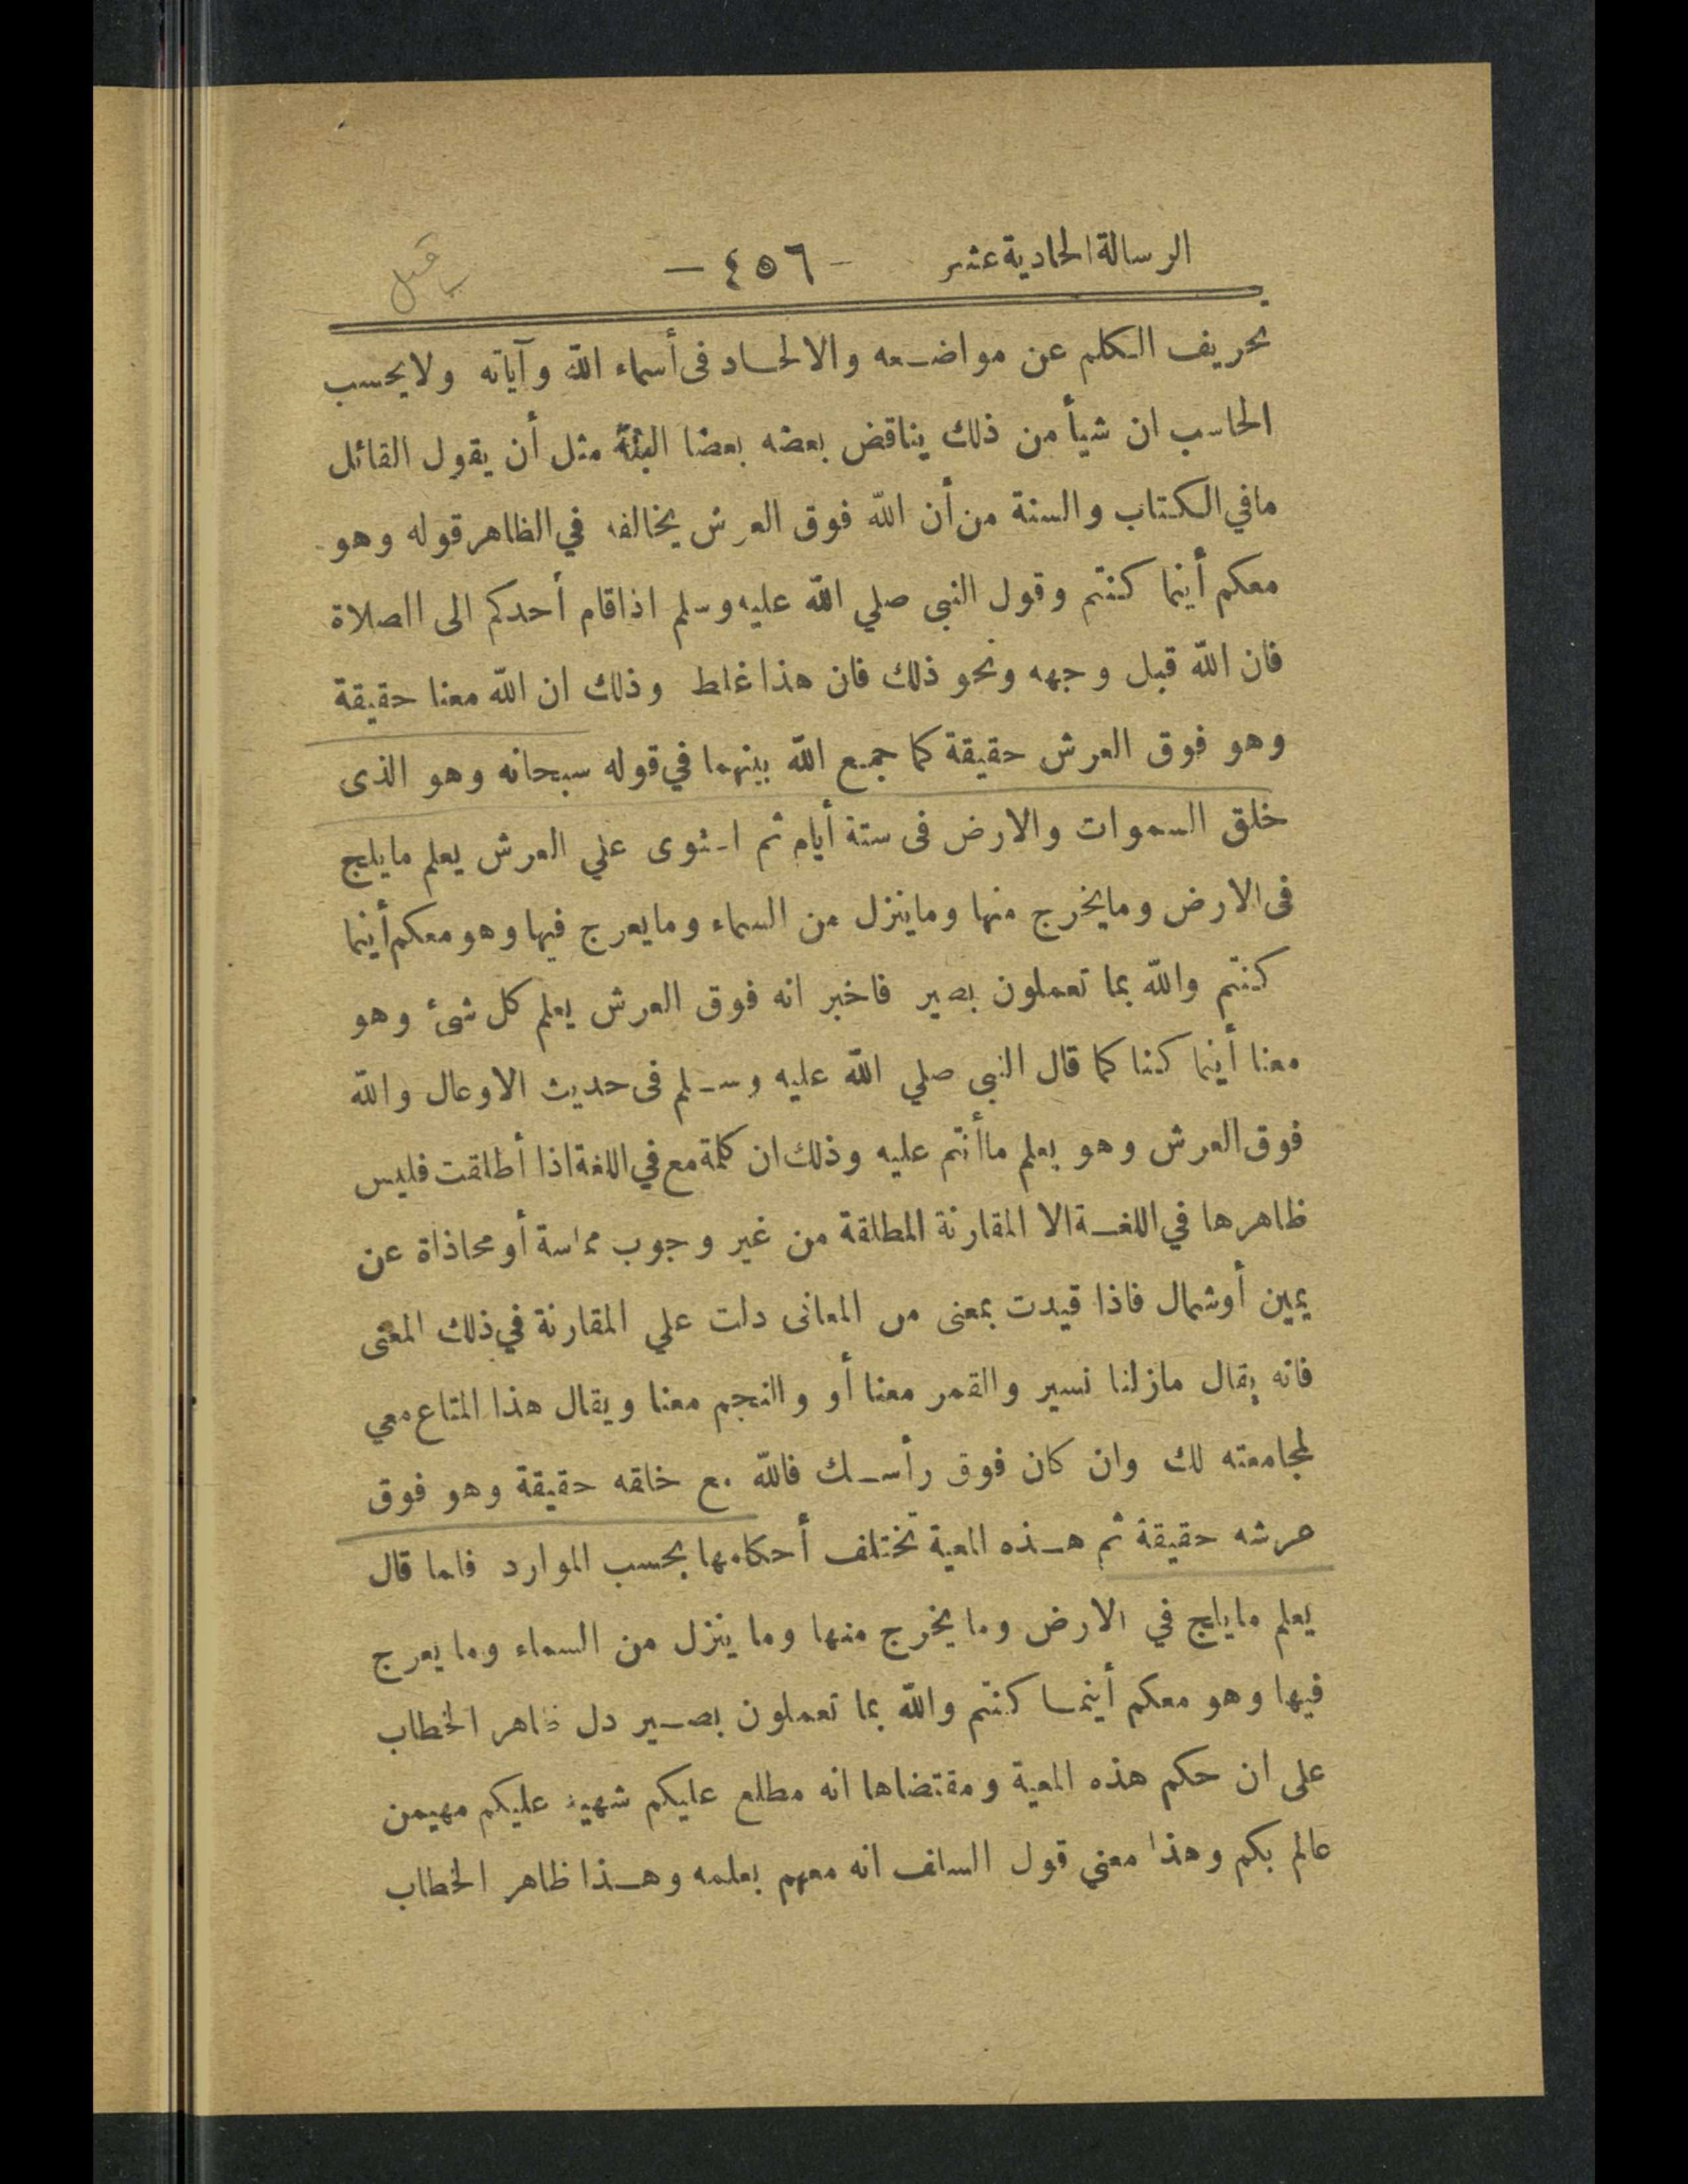 الرسالة الحادية عشر - ٤٥٦ -
تحريف الكلم عن مواضعه والالحاد فى أسماء الله وآياته ولا يحسب
الحاسب ان شيأ من ذلك يناقض بعضه بعضا البتة مثل أن يقول القائل
مافي الكتاب والسنة من أن الله فوق العرش يخالفه في الظاهر قوله وهو
معكم أينما كنتم وقول النبى صلي الله عليه وسلم اذا قام أحدكم الى الصلاة
فان الله قبل وجهه ونحو ذلك فان هذا غلط وذلك ان الله معنا حقيقة
وهو فوق العرش حقيقة كما جمع الله بينهما في قوله سبحانه وهو الذى
خلق السموات والارض فى ستة أيام ثم استوى علي العرش يعلم مايلج
فى الارض ومايخرج منها وماينزل من السماء ومايعرج فيها وهو معكم أينما
كنتم والله بما تعملون بصير فاخبر انه فوق العرش يعلم كل شئ وهو
معنا أينما كنا كما قال النبى صلي الله عليه وسلم فى حديث الاوعال والله
فوق العرش وهو يعلم ماأنتم عليه وذلك ان كلمة مع في اللغة اذا أطلقت فليس
ظاهرها في اللغة الا المقارنة المطلقة من غير وجوب مماسة أو محاذاة عن
يمين أوشمال فاذا قيدت بمعنى من المعانى دلت علي المقارنة في ذلك المعنى
فانه يقال مازلنا نسير والقمر معنا أو والنجم معنا ويقال هذا المتاع معي
لمجامعته لك وان كان فوق رأسك فالله مع خلقه حقيقة وهو فوق
عرشه حقيقة ثم هذه المعية تختلف أحكامها بحسب الموارد فلما قال
يعلم مايلج في الارض وما يخرج منها وما ينزل من السماء وما يعرج
فيها وهو معكم أينما كنتم والله بما تعملون بصير دل ظاهر الخطاب
على ان حكم هذه المعية ومقتضاها انه مطلع عليكم شهيد عليكم مهيمن
عالم بكم وهذا معني قول السلف انه معهم بعلمه وهذا ظاهر الخطاب